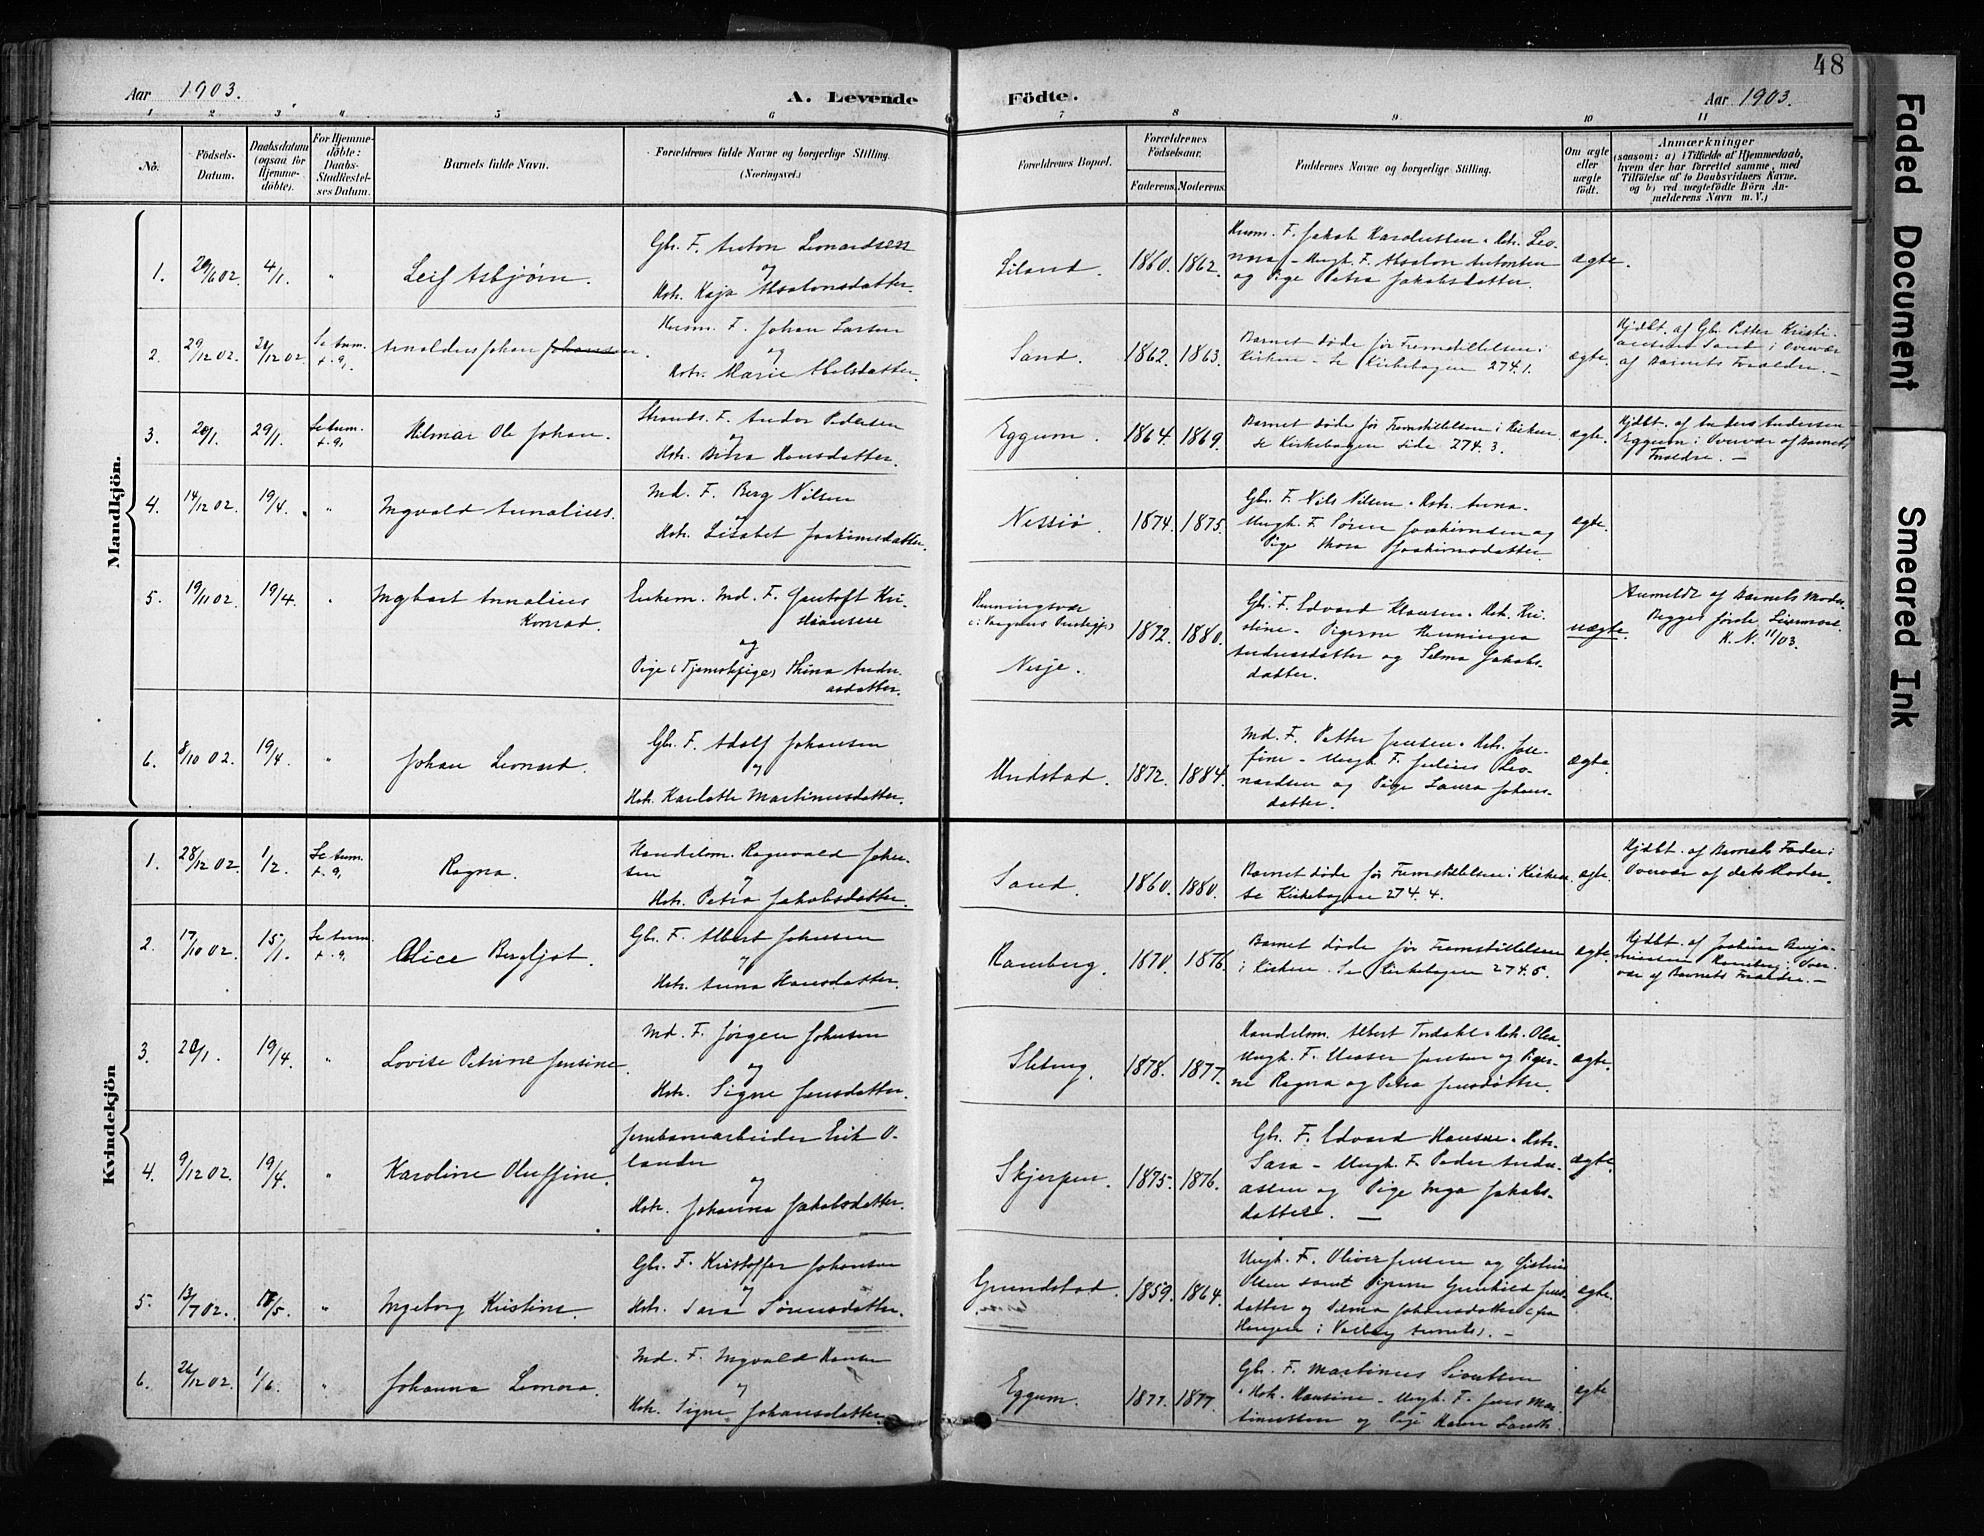 48
Aar 1903.
A. Levende
Födte.
Aar 1903.
1 2 3 4 5 6 7 8 9 10 11
No.
Födsels-
Datum.
Daabsdatum
(ogsaa for
Hjemme-
döbte).
For Hjemme-
döbte:
Daabs-
Stadfæstel-
ses Datum.
Barnets fulde Navn.
Forældrenes fulde Navne og borgerlige Stilling.
(Næringsvei.)
Forældrenes Bopæl.
Forældrenes
Födselsaar.
Faderens.
Moderens.
Faddernes Navne og borgerlige Stilling.
Om ægte
eller
uægte
födt.
Anmærkninger
(saasom: a) i Tilfælde af Hjemmedaab,
hvem der har forrettet samme, med
Tilföielse af to Daabsvidners Navne,
og b) ved uægtefödte Börn An-
melderens Navn m. V.)
Mandkjön.
1. 4/1. " Leif Asbjörn.
Gbr. F. Anton Leonardsen
og
Hstr. Kaja Absalonsdatter.
Liland. 1860. 1862.
Husm. F. Jakob Karolussen. Hstr. Leo-
nora – Ungk. F. Absalon Antonsen
og Pige Petra Jakobsdatter.
ægte.
2. 29/12 02. Se anm.
+ 9, Arnoldus Johan Johansen.
Husm. F. Johan Larsen
og
Hstr. Marie Abelsdatter.
Sand. 1862. 1863.
Barnet døde før Fremstillelsen i
Kirken – Se Kirkebogen 274.1.
ægte.
Hjdbt. af Gbr. Petter Kristi-
ansen Sand i Overvær
af Barnets Forældre. –
3. 29/1. Se anm.
+ 9, Hilmar Ole Johan.
Strands. F. Andor Pedersen
og
Hstr. Hansdatter.
Eggum. 1864. 1869.
Barnet døde før Fremstillelsen i Kirken
se Kirkebogen side 274.3.
ægte.
Hjdbt. af Anders Andersen
Eggum i Overvær af Barnets
Forældre. –
4. 14/12 02. 19/4. " Ingvald Annalius.
Md. F. Berg Nilsen
og
Hstr. Lisabet Joakimsdatter.
1874. 1875.
Gbr. F. Nils Nilsen. Hstr. Anna.
Ungk. F. Søren Joakimsen og
Pige Thora Joakimsdatter.
ægte.
5. 19/11 02. 19/4. " Ingbart Annalius
Konrad.
Enkem. Md. F. Gentoft Kri-
stiansen
og
Pige (Tjenestepige) Stina Andre-
asdatter.
Henningsvær
(i Vaagans Prestegj.)
Nesje.
1872. 1880.
Gbr. F. Edvard Klausen. Hstr. Kri-
stine – Pigerne Henningea
Andreasdatter og Selma Jakobs-
datter.
uægte.
Anmeldt af Barnets Moder
Begges første Leiermaal.
K. N. 11/03.
6. 8/10 02. 19/4. " Johan Leonard.
Gbr. F. Adolf Johansen
og
Hstr. Karlotte Martinusdatter.
Unstad. 1872. 1884.
Md. F. Petter Jensen. Hstr. Jose-
fine – Ungk. F. Julius Leo-
nardsen og Pige Laura Johans-
datter.
ægte
Kvindekjön
1. 28/12 02. 1/2. Se anm.
+ 9, Ragna.
Handelsm. Ragnvald Johan-
sen
og
Hstr. Petra Jakobsdatter.
Sand. 1860. 1880.
Barnet døde før Fremstillelsen i Kirken
se Kirkebogen 274.4.
ægte.
Hjdbt. af Barnets Fader i
Overvær af dets Moder.
2. 17/10 02. 15/1. Se anm.
+ 9, Alice Bergljot.
Gbr. F. Albert Johnsen
og
Hstr. Anna Hansdatter.
Ramberg. 1870. 1876.
Barnet døde før Fremstillelsen
i Kirken. Se Kirkebogen 274.5.
ægte.
Hjdbt. af Joakim Benja-
minsen Ramberg i Over-
vær af Barnets Forældre. –
3. 20/1. 19/4. " Lovise Petrine Jensine.
Md. F. Jørgen Johnsen
og
Hstr. Signe Jensdatter.
1878. 1877.
Handelsm. Albert Tordahl. Hstr. Olea.
Ungk. F. Jensen og Piger-
ne Ragna og Petra Jensdøttre.
ægte.
4. 9/12 02. 19/4. " Karoline Oluffine.
Jernbanearbeider Erik O-
lander
og
Hstr. Johanna Jakobsdatter.
Skjerpen. 1875. 1876.
Gbr. F. Edvard Hansen. Hstr.
Sara – Ungk. F. Peder Andre-
assen og Pige Inga Jakobs-
datter. –
ægte.
5. 13/7 02. /5. " Ingeborg Kristine.
Gbr. F. Kristoffer Johansen
og
Hstr. Sara Sørensdatter.
Grundstad. 1859. 1864.
Ungk. F. Oliver Jensen og
Olsen samt Pigerne Gunhild Jens-
datter og Selma Johansdatter (fra
Haugen i Valberg Annex). –
ægte.
6. 26/12 02. 1/6. " Johanna Leonora.
Md. F. Ingvald Hansen
og
Hstr. Signe Johansdatter.
Eggum. 1877. 1877.
Gbr. F. Martinus Sivertsen
. Hstr. Hansine – Ungk. F. Jens Mar-
tinussen og Pige
ægte
Faded Document
Smeared Ink